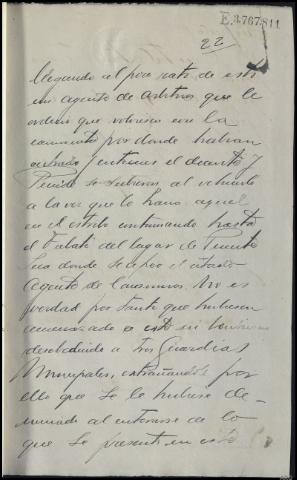 E.3767.811
22
llegando al poco rato de esto
un agente de arbitrios que le
ordenó que volviesen con la
por donde habían
entrado y entonces el
se subieron al vehículo
a la vez que lo hizo aquel
en el estribo continuando hasta
el fielato del lugar de Puente
donde se apeó el citado
Agente de Consumos. No es
verdad por tanto que hubiesen
amenazado a este ni
desobedecido a los Guardias
Municipales, extrañándole por
ello que se le hubiese de-
nunciado al enterarse de lo
que se presenta en este